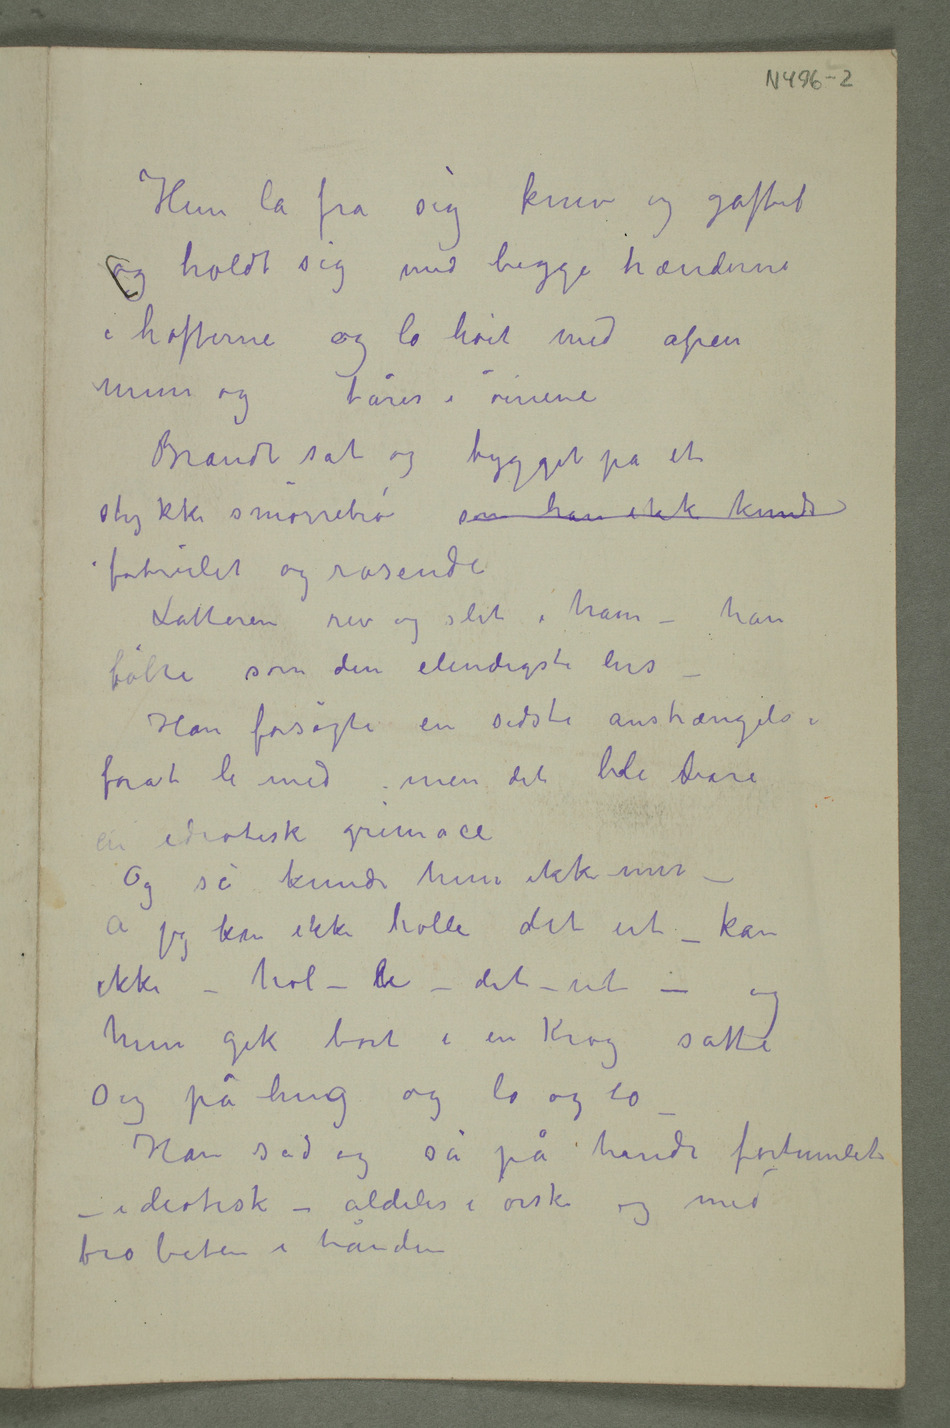 N496-2
Hun la fra sig kniv og gaffel
og holdt sig med begge hænderne
i hofterne og lo høit med apen
mun og tårer i öinene
Brandt sat og tygget på et
stykke smörrebrö som han ikk kunde
fortvilet og rasende
Latteren rev og slet i ham – han
följte som den elendigste lus –
Han forsögte en sidste anstrængelse
forat le med . men det ble bare
en idiotisk grimace
Og så kunde hun ikke mer –
A jeg kan ikke holle det ut – kan
ikke – hol – le – det – ut – og
hun gik bort i en Krog satte
sig på hug og lo og lo –
Han sad og så på hende fortumlet
– idiotisk – aldeles i örske og med
brøbeten i hånden